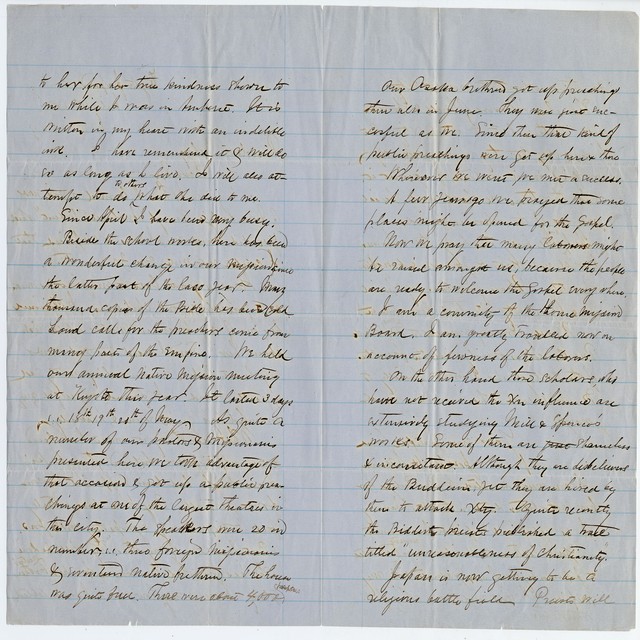 to her for her true kindness shown to
me while I was in Amherst. It is
written in my heart with an indelible
ink. I have remembered it & will do
so as long as I live. I will also at-
tempt to do to others what she did to me.
Since April I have been very busy.
Beside the school works, there has been
a wonderful change in our Mission since
the latter part of the last year. Many
thousand copies of the Bible has been sold
Loud calls for the preachers come from
many parts of the empire. We held
our annual Native Mission meeting
at Kioto this year. It lasted 3 days
18th 19th 20th of May. As quite a
number of our pastors & Missionaries
presented here we took advantage of
that occasion & got up a public prea-
chings at one of the largest theatres in
this city. The speakers were 20 in
number, i.e. three foreign Missionaries
& seventeen native brethren. The house
was quite full. There were about 4,000
Our Osaka brethren got up preachings
there also in June. They were just suc-
cessful as we. Since then that kind of
public preachings were got up here & there
Wherever we went we met a success.
A few years ago we prayed that some
places might be opened for the Gospel.
Now we pray that many laborers might
be raised amongst us, because the people
are ready to welcome the Gospel everywhere.
I am a committy of the Home Mission
Board. I am greatly troubled now on
account of fewness of the laborers.
On the other hand those scholars who
have not received the Xn influence are
extensively studying Mill & Spencer's
works. Some of them are shameless
& inconsistent. Although they are disbelievers
of the Buddhism yet they are hired by
them to attack Xty. Quite recently
the Buddhist priests published a tract
titled unreasonableness of Christianity.
Japan is now getting to be a
religious battle field. Priests will